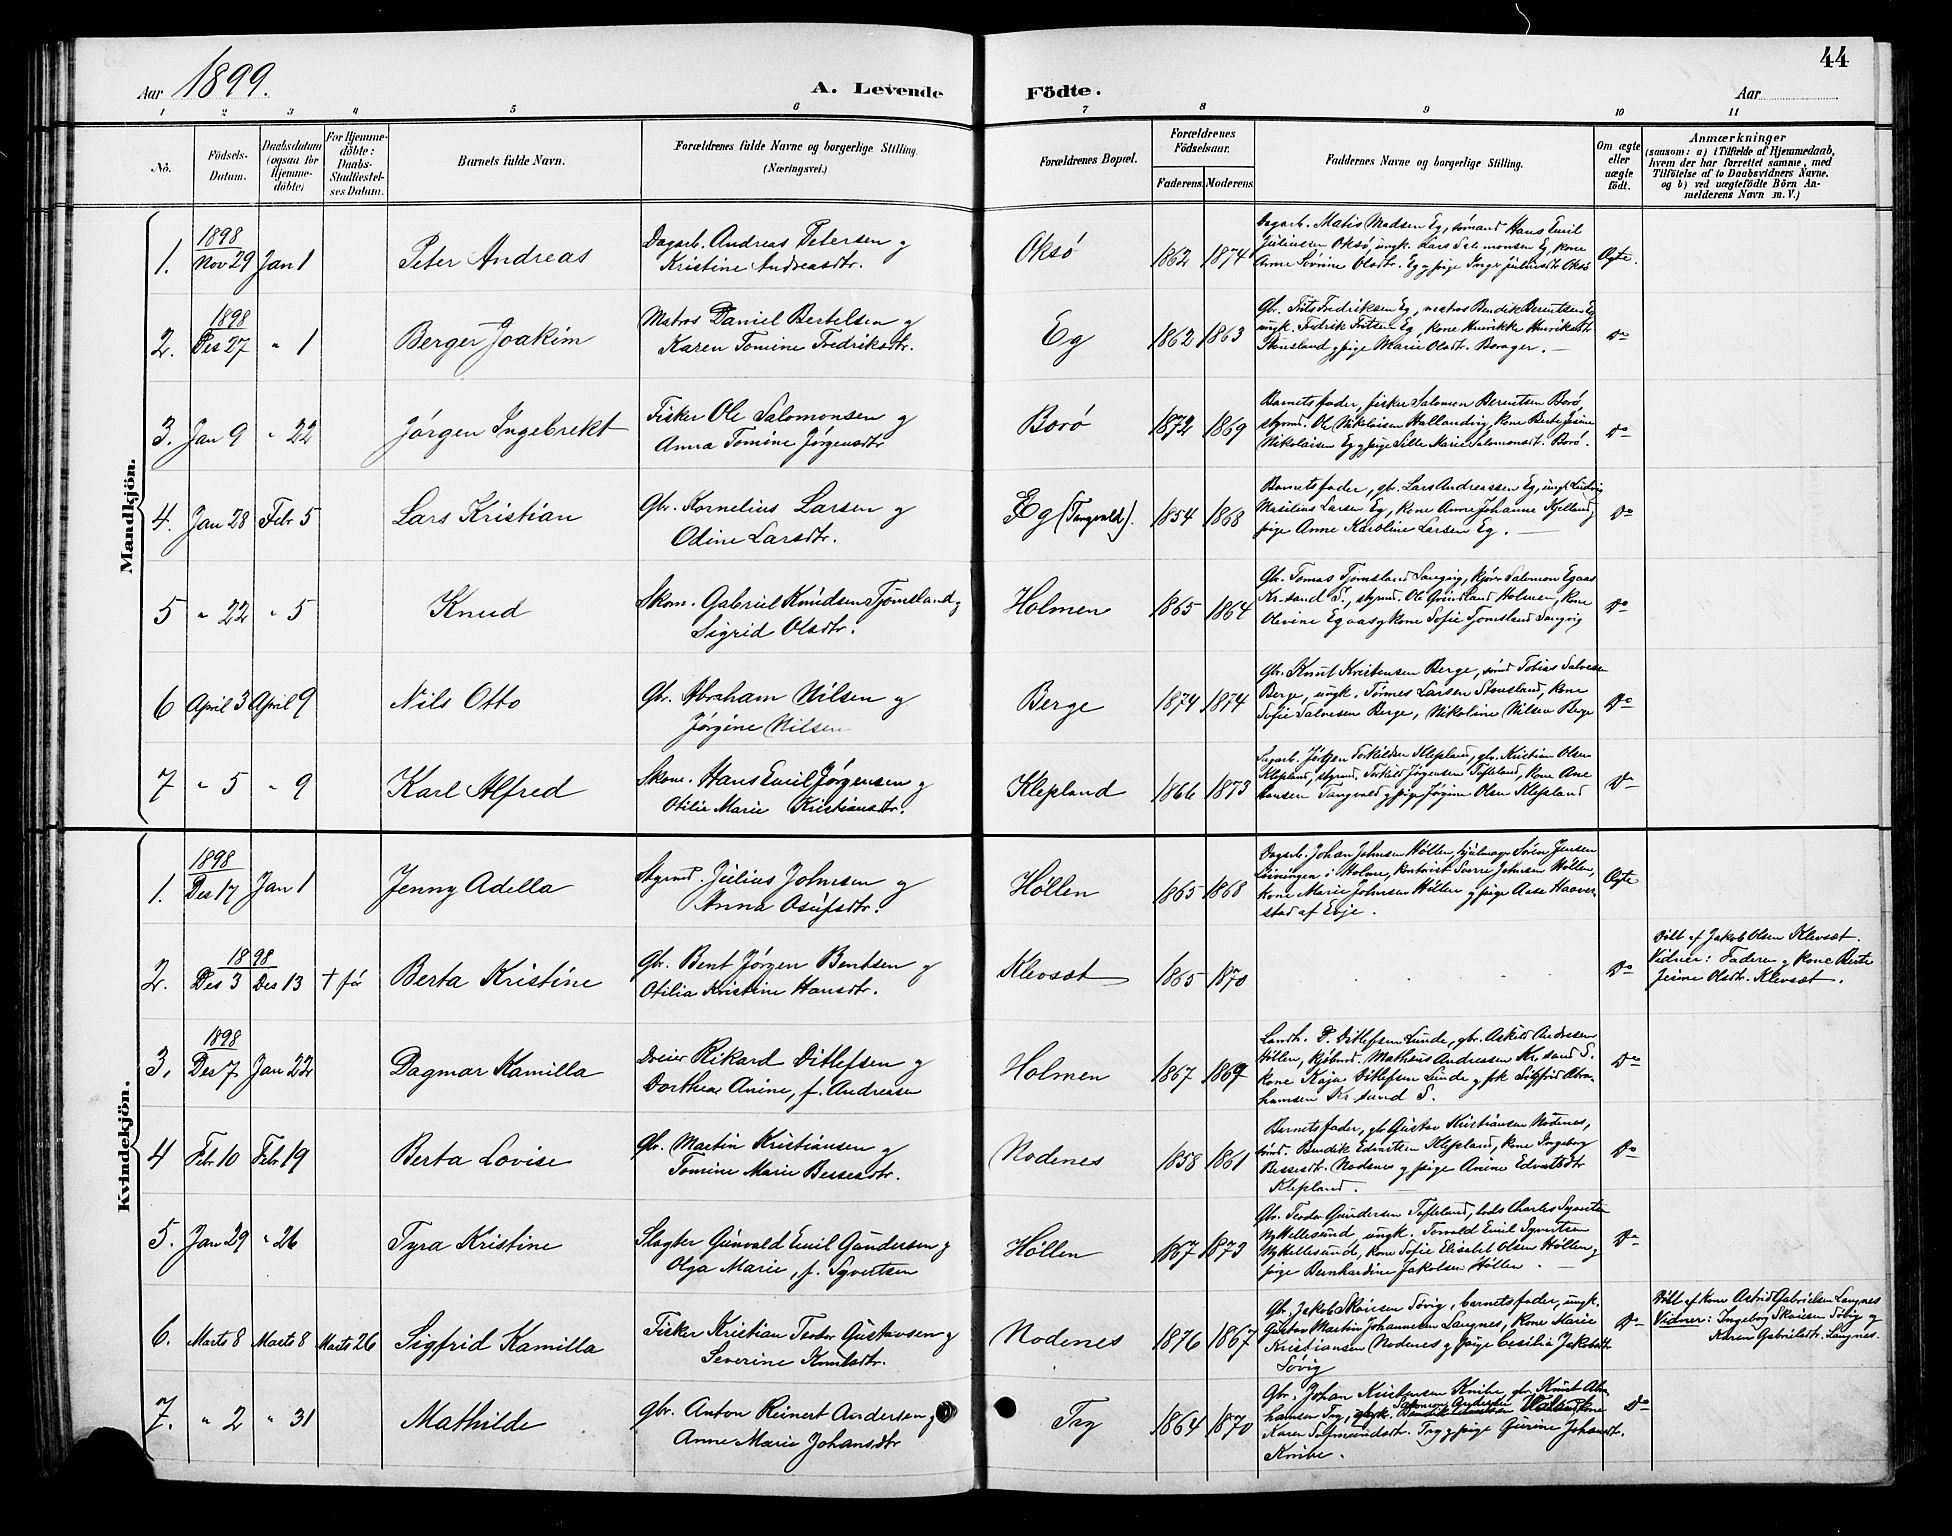 44
Aar 1899.
A. Levende Födte.
Aar
1 2 3 4 5 6 7 8 9 10 11
No.
Födsels-Datum.
Daabsdatum (ogsaa for Hjemme-döbte)
For Hjemme-döbte: Daabs-Stadfæstel-ses Datum.
Barnets fulde Navn.
Forældrenes fulde Navne og borgerlige Stilling.
(Næringsvei.)
Forældrenes Bopæl.
Forældrenes Födselsaar.
Faderens. Moderens.
Faddernes Navne og borgerlige Stilling.
Om ægte eller uægte födt.
Anmærkninger
(saasom: a) i Tilfælde af Hjemmedaab,
hvem der har forrettet samme, med
Tilföielse af to Daabsvidners Navne,
og b) ved uægtefödte Börn An-
melderens Navn m. V.)
Mandkjön.
1. 1898 Nov 29 Jan 1 Peter Andreas
Dagarb. Andreas Petersen og
Kristine Andreasdtr.
Oksø 1862 1874
Dagarb. Matis Madsen Eg, sömand Hans Emil
Juliussen Oksø, ungk. Lars Salomonsen Eg, kone
Anne Sövrine Olsdtr. Eg og pige Inge Juliusdtr Oksø
Ægte.
2. 1898 Des 27 " 1 Berger Joakim
Matros Daniel Bertelsen og
Karen Tomine Fredriksdtr.
Eg 1862 1863
Gbr. Frits Fredriksen Eg, matros Bendik Berentsen Eg
ungk. Fredrik Fritsen Eg, kone Henrikke Henriksdtr
Stausland og pige Marie Olsdtr. Borager.
Do
3. Jan 9 " 22 Jørgen Ingebrekt
Fisker Ole Salomonsen og
Anna Tomine Jørgensdtr
Borø 1872 1869
Barnets fader, fisker Salomon Berntsen Borø
styrmd. Ol Nikolaisen Hallandvig, kone Berte Jesine
Nikolaisen Eg og pige Sille Marie Salomonsdt. Borø.
Do
4. Jan 28 Febr 5 Lars Kristian
Gbr. Kornelius Larsen og
Odine Larsdtr.
Eg (Tangvald). 1854 1868
Barnets fader, gb. Lars Andreassen Eg, ungk Ludvig
Masilius Larsen Eg, kone Anne Johanne Kjelland,
pige Anne Karoline Larsen Eg.
Do
5 " 22 " 5 Knud
Skom. Gabriel Knudsen Tjomsland og
Sigrid Olsdtr.
Holmen 1865 1864
Gbr. Tomas Tjomsland Sangvig, kjører Salomon Egaas
Kr-sand S., styrmd. Ole Grindland Holmen, kone
Olevine Egaas og kone Sofie Tjomsland Sangvig
Do
6 April 3 April 9 Nils Otto
Gbr. Abraham Nilsen og
Jørgine Nilsen
Berge 1874 1874
Gbr. Knut Kristensen Berge, sömd Tobias Salvesen
Berge, ungk. Tönnes Larsen Stausland, kone
Sofie Salvesen Berge, Nikoline Nilsen Berge
Do
7 " 5 " 9 Karl Alfred
Skom. Hans Emil Jørgensen og
Otilie Marie Kristiansdtr.
Klepland 1866 1873
Dagarb. Jørgen Torkildsen Klepland, gbr. Kristian Olsen
Klepland, styrmd. Torkild Jørgensen Tofteland, kone Ane
Hansen Tangvald og pige Jørgine Olsen Klepland
Do
Kvindekjön.
1. 1898 Des 17 Jan 1 Jenny Adella
Styrmd. Julius Johnsen og
Anna Osufsdtr.
Høllen 1865 1868
Dagarb. Johan Johnsen Høllen, hjulmager Søren Jensen
i Holme, kontorist Sverre Johnsen Høllen,
kone Marie Johnsen Høllen og pige Aase Haaver-
stad af Evje.
Ægte
2. 1898 Des 3 Des 13 † før Berta Kristine
Gbr. Bent Jørgen Bentsen og
Otilia Kristine Hansdtr.
Klevsæt 1865 1870
Do
Døbt af Jakob Olsen Klevsæt.
Vidner: Faderen og kone Berte
Jesine Olsdtr. Klevsæt.
3. 1898 Des 7 Jan 22 Dagmar Kamilla
Dreier Rikard Ditlefsen og
Dorthea Anine, f. Andreasen
Holmen 1867 1869
Landh. D. Ditlefsen Lunde, gbr. Askild Andresen
Høllen, kjøbmd. Mathæus Andreassen Kr. sand S.
kone Kaja Ditlefsen Lunde og frk Sigfrid Abra-
hamsen Kr. sand S.
Do
4 Febr 10 Febr 19 Berta Lovise
Gbr. Martin Kristiansen og
Tomine Marie Bessesdtr.
Nodenes 1858 1861
Barnets fader, gb Gustav Kristiansen Nodenes,
sömd. Bendik Edvartsen Klepland, kone Ingeborg
Bessesdtr. Nodenes og pige Anine Edvartsdtr
Klepland.
Do
5. Jan 29 " 26 Tyra Kristine
Slagter Gunvald Emil Gundersen og
Olga Marie, f. Syvertsen
Høllen 1867 1873
Gbr. Teodor Gundersen Tofteland, lods Charles Syvertsen
Ny Hellesund, ungk. Torvald Emil Syvertsen
Ny Hellesund, kone Sofie Elisabet Olsen Høllen og
pige Bernhardine Jakobsen Høllen.
Do
6. Marts 8 Marts 8 Marts 26 Sigfrid Kamilla
Fisker Kristian Teodor Gustavsen og
Severine Knutsdtr.
Nodenes 1876 1867
Gbr. Jakob Skaiesen Søvig, barnets fader, ungk.
Gustav Martin Johannesen Langnes, kone Marie
Kristiansen Nodenes og pige Cesilia Jakobsdtr
Søvig
Do
Døbt af kone Astrid Gabrielsen Langnes
Vidner: Ingeborg Skaiesen Søvig og
Karen Gabrielsdtr. Langnes.
7. " 2 " 31 Mathilde
Gbr. Anton Reinert Andersen og
Anne Marie Johansdtr
Try 1864 1870
Gbr. Johan Kristensen Knibe, gbr Knut Abra-
hamsen Try, ungk. Salomon Andersen kone
Karen Salmundsdtr. Try og pige Gurine Johansdt.
Knibe.
Do